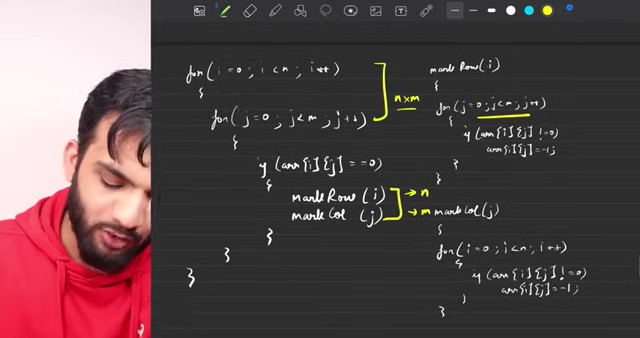 for(i=0; i<n; i++)
{
for(j=0; j<m; j++)
{
if (arr[i][j]==0)
{
markRow(i)
markCol(j)
}
}
}
n×m
→ n
→ m
markRow(i)
{
for(j=0; j<m; j++)
{
if (arr[i][j] != 0)
arr[i][j]=-1;
}
}
markCol(j)
{
for(i=0; i<n; i++)
{
if (arr[i][j] != 0)
arr[i][j]=-1;
}
}